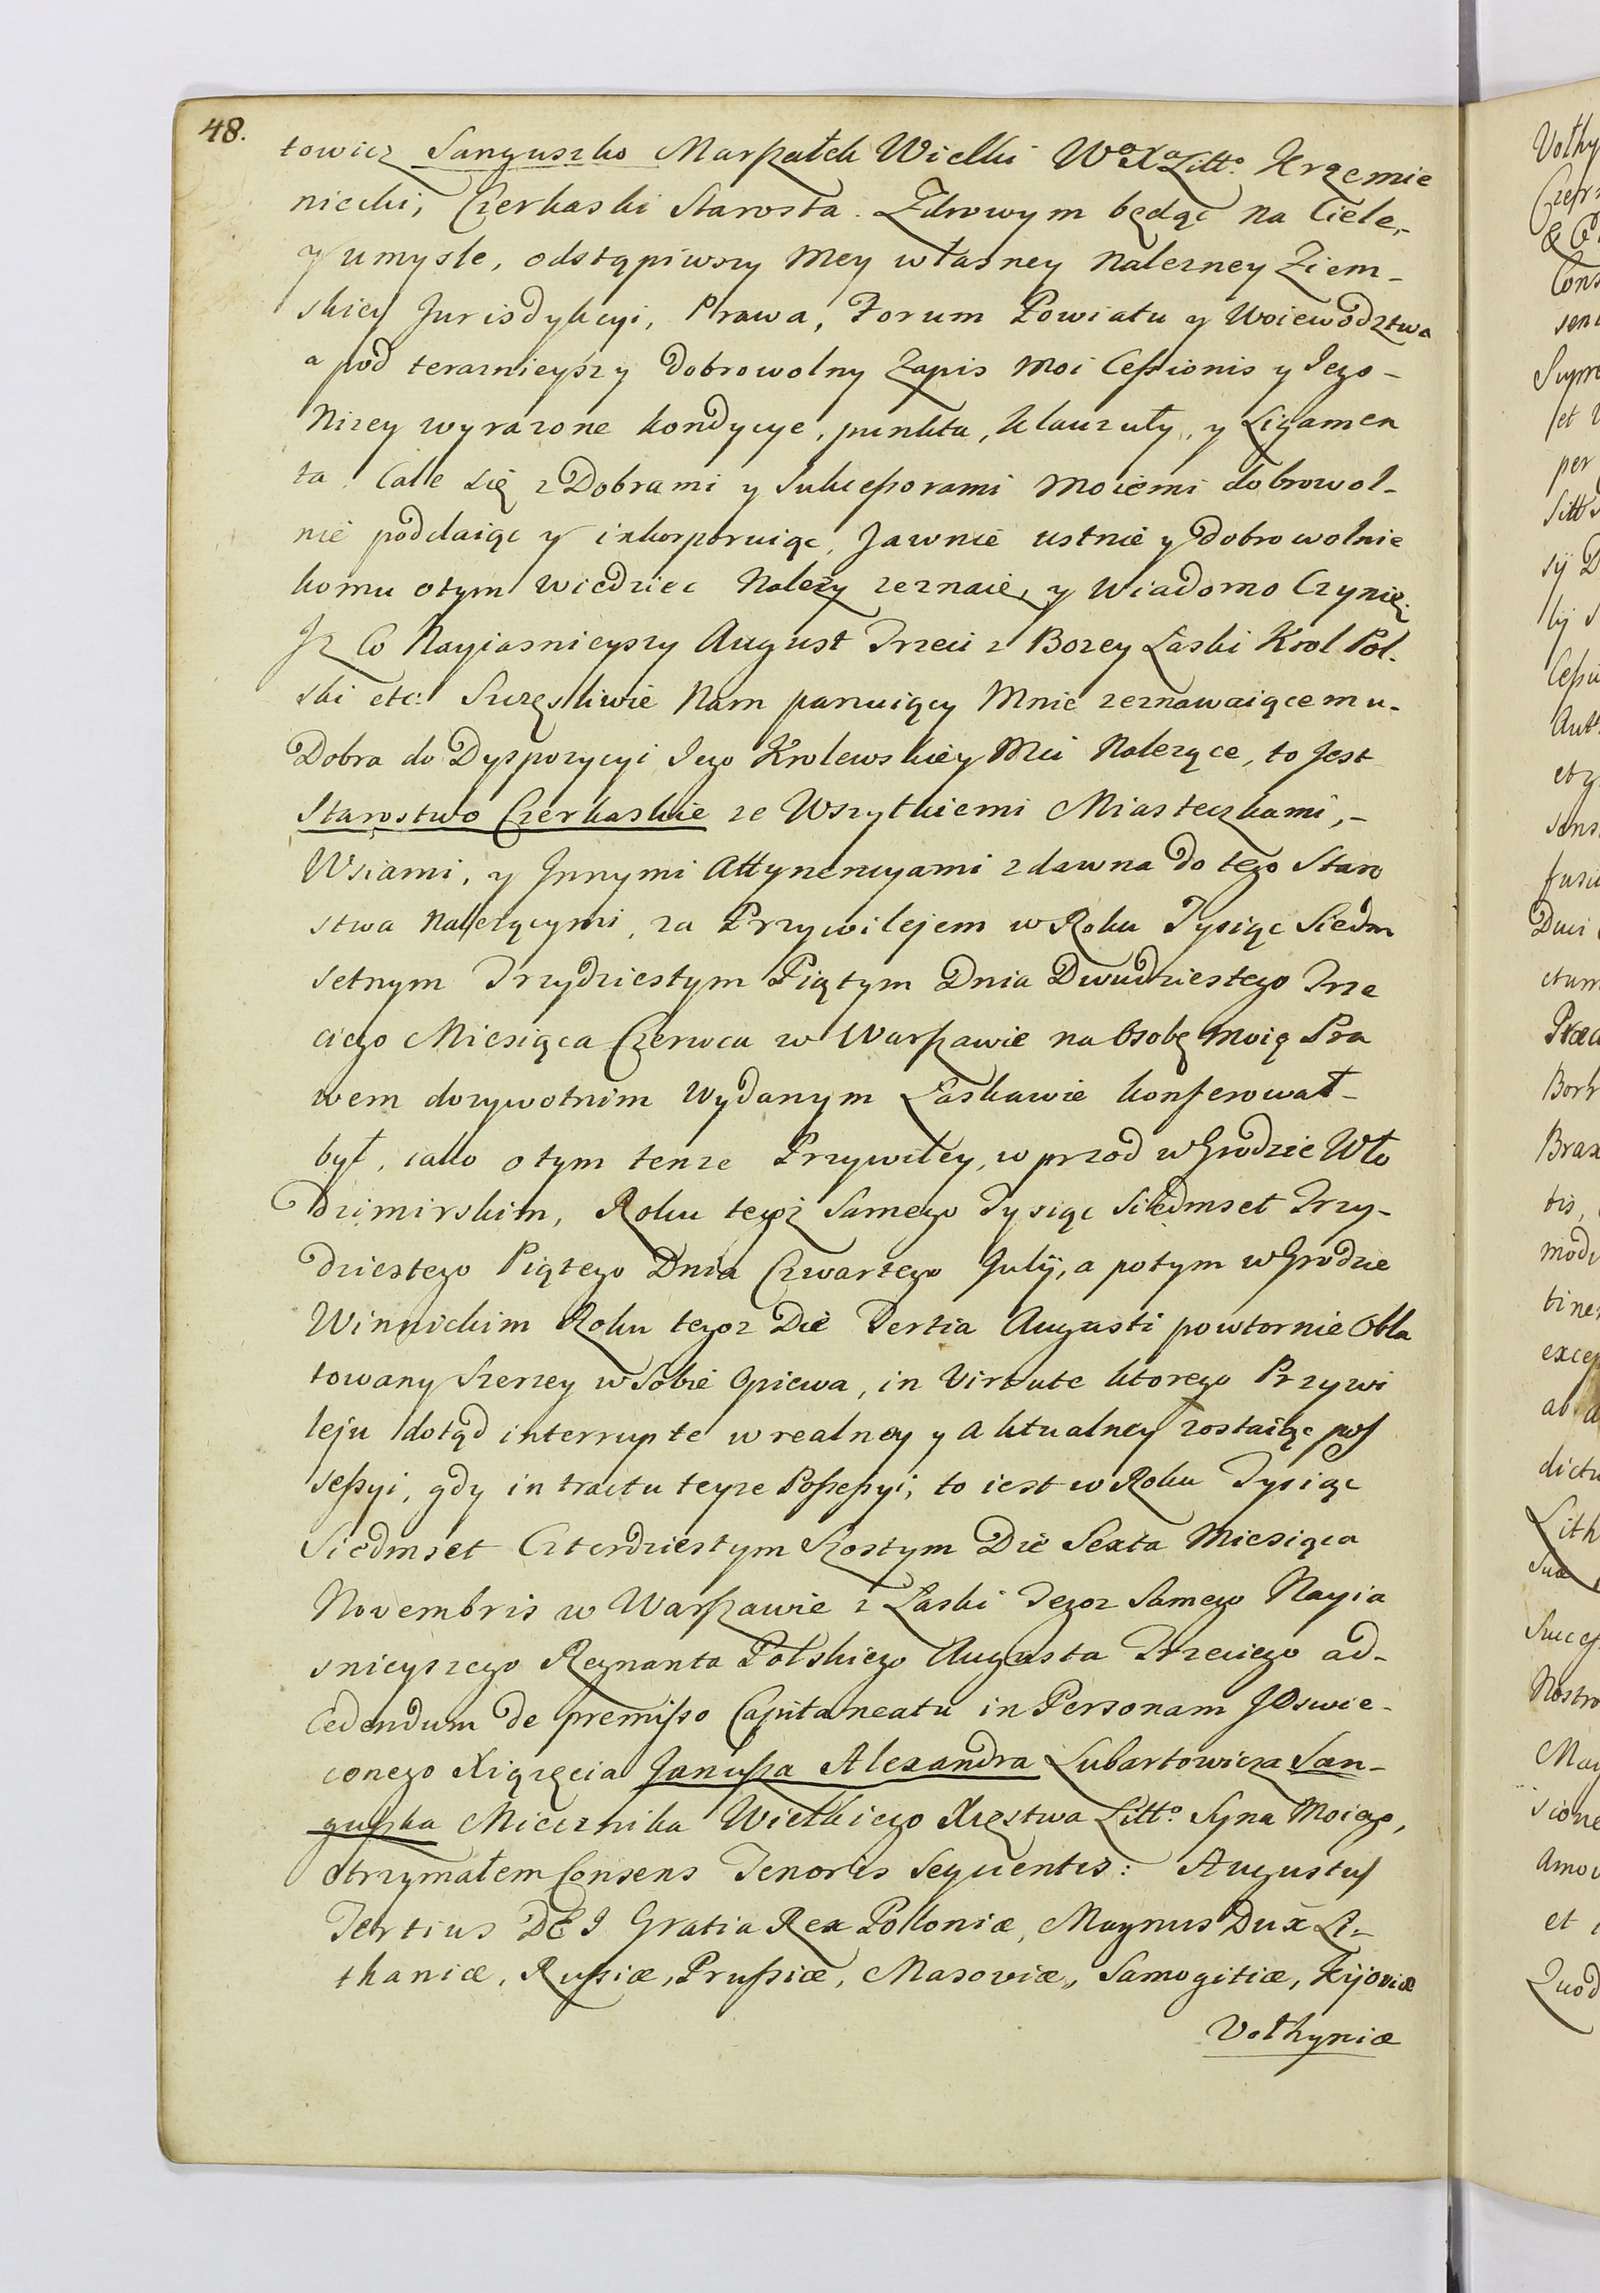 48.
towicz Sanguszko Marszałek Wielki Wo Xa Litto. Krzemie
niecki, Czerkaski Starosta. Zdrowym będąc na Ciele,-
y umysle, odstąpiwszy mey własney nalezney Ziem-
skiey Jurisdykcyi, Prawa, Forum Powiatu y Woiewodztwa
a pod teraznieyszy dobrowolny Zapis moi Cessionis y Jego-
Nizey wyrazone kondycye, punkta, klauzuły, y Ligamen
ta Całe się z Dobrami y Sukcessorami moiemi dobrowol-
nie poddaiąc y inkorporuiąc, Jawnie ustnie y dobrowolnie
komu otym wiedziec Nalezy zeznaię, y wiadomo Czynię;
Jz Co Nayiasnieyszy August Trzeci z Bozey Łaski Krol Pol-
ski etc: Szczęsliwie Nam panuiący Mnie zeznawaiącemu-
Dobra do Dyspozycyi Jego Krolewskiey Mci Nalezące, to Jest
Starostwo Czerkaskie ze Wszytkiemi Miasteczkami,-
Wsiami, y Jnnymi Attynencyami zdawna do tego Staro
stwa Nalezącymi, za Przywilejem w Roku Tysiąc Siedm
setnym Trzydziestym Piątym Dnia Dwudziestego Trze
ciego Miesiąca Czerwca w Warszawie na Osobę moią Pra
wem dozywotnim Wydanym Łaskawie konferował-
był, iako o tym tenze Przywiley, w przod w Grodzie Wło
Dzimirskim, Roku tegoz Samego Tysiąc Siedmset Trzy-
dziestego Piątego Dnia Czwartego Julij, a potym w Grodzie
Winnickim Roku tegoz Die Tertia Augusti powtornie Obla
towany Szerzey w Sobie Opiewa, in Virtute ktorego Przywi
leju dotąd interrupte w realney y Aktualney zostaiąc pos
sessyi, gdy in tractu teyze Possessyi, to iest w Roku Tysiąc
Siedmset Czterdziestym Szostym Die Sexta Miesiąca
Novembris w Warszawie z Łaski Tegoz Samego Nayia
snieyszego Regnanta Polskiego Augusta Trzeciego ad-
Cedendum de premisso Capitaneatu in Personam JOswie-
conego Xiązęcia Janusza Alexandra Lubartowicza San-
guszka Miecznika Wielkiego Xięstwa Litto. Syna Moiego,
Otrzymałem Consens Tenoris Sequentis: Augustus
Tertius DEI Gratia Rex Poloniæ, Magnus Dux Li-
thaniæ, Russiæ, Prussiæ, Masoviæ, Samogitiæ, Kijoviæ
Vołhyniæ